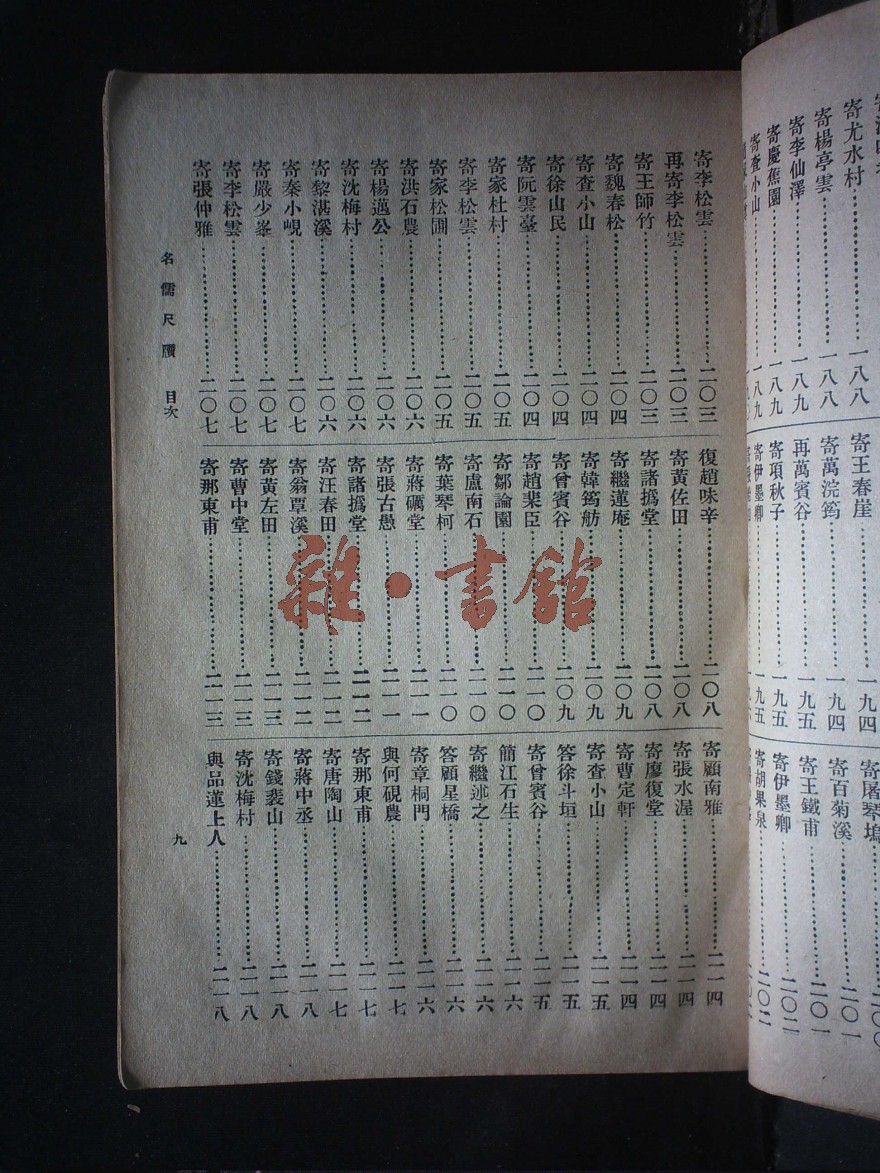 寄尤水村……一八八
寄楊亭雲……一八八
寄李仙澤……一八九
寄慶蕉園……一八九
寄查小山……一八九
寄王春崖……一九四
寄萬浣筠……一九四
再萬賓谷……一九五
寄項秋子……一九五
寄伊墨卿……一九五
寄屠琴塢……二〇〇
寄百菊溪……二〇一
寄王鐵甫……二〇一
寄伊墨卿……二〇二
寄胡果泉……二〇二
寄李松雲……二〇三
再寄李松雲……二〇三
寄王師竹……二〇三
寄魏春松……二〇四
寄查小山……二〇四
寄徐山民……二〇四
寄阮雲臺……二〇四
寄家杜村……二〇五
寄李松雲……二〇五
寄家松圃……二〇五
寄洪石農……二〇六
寄楊邁公……二〇六
寄沈梅村……二〇六
寄黎湛溪……二〇六
寄秦小峴……二〇七
寄嚴少峯……二〇七
寄李松雲……二〇七
寄張仲雅……二〇七
復趙味辛……二〇八
寄黃佐田……二〇八
寄諸撝堂……二〇八
寄繼蓮庵……二〇九
寄韓筠舫……二〇九
寄曾賓谷……二〇九
寄趙棐臣……二一〇
寄鄒論園……二一〇
寄盧南石……二一〇
寄葉琴柯……二一〇
寄蔣礪堂……二一一
寄張古愚……二一一
寄諸撝堂……二一二
寄汪春田……二一二
寄翁覃溪……二一二
寄黃左田……二一三
寄曹中堂……二一三
寄那東甫……二一三
寄顧南雅……二一四
寄張水渥……二一四
寄廖復堂……二一四
寄曹定軒……二一四
寄查小山……二一五
答徐斗垣……二一五
寄曾賓谷……二一五
簡江石生……二一六
寄繼述之……二一六
答顧星橋……二一六
寄章桐門……二一六
與何硯農……二一七
寄那東甫……二一七
寄唐陶山……二一七
寄蔣中丞……二一八
寄錢裴山……二一八
寄沈梅村……二一八
與品蓮上人……二一八
名儒尺牘 目次
九
雜·書館